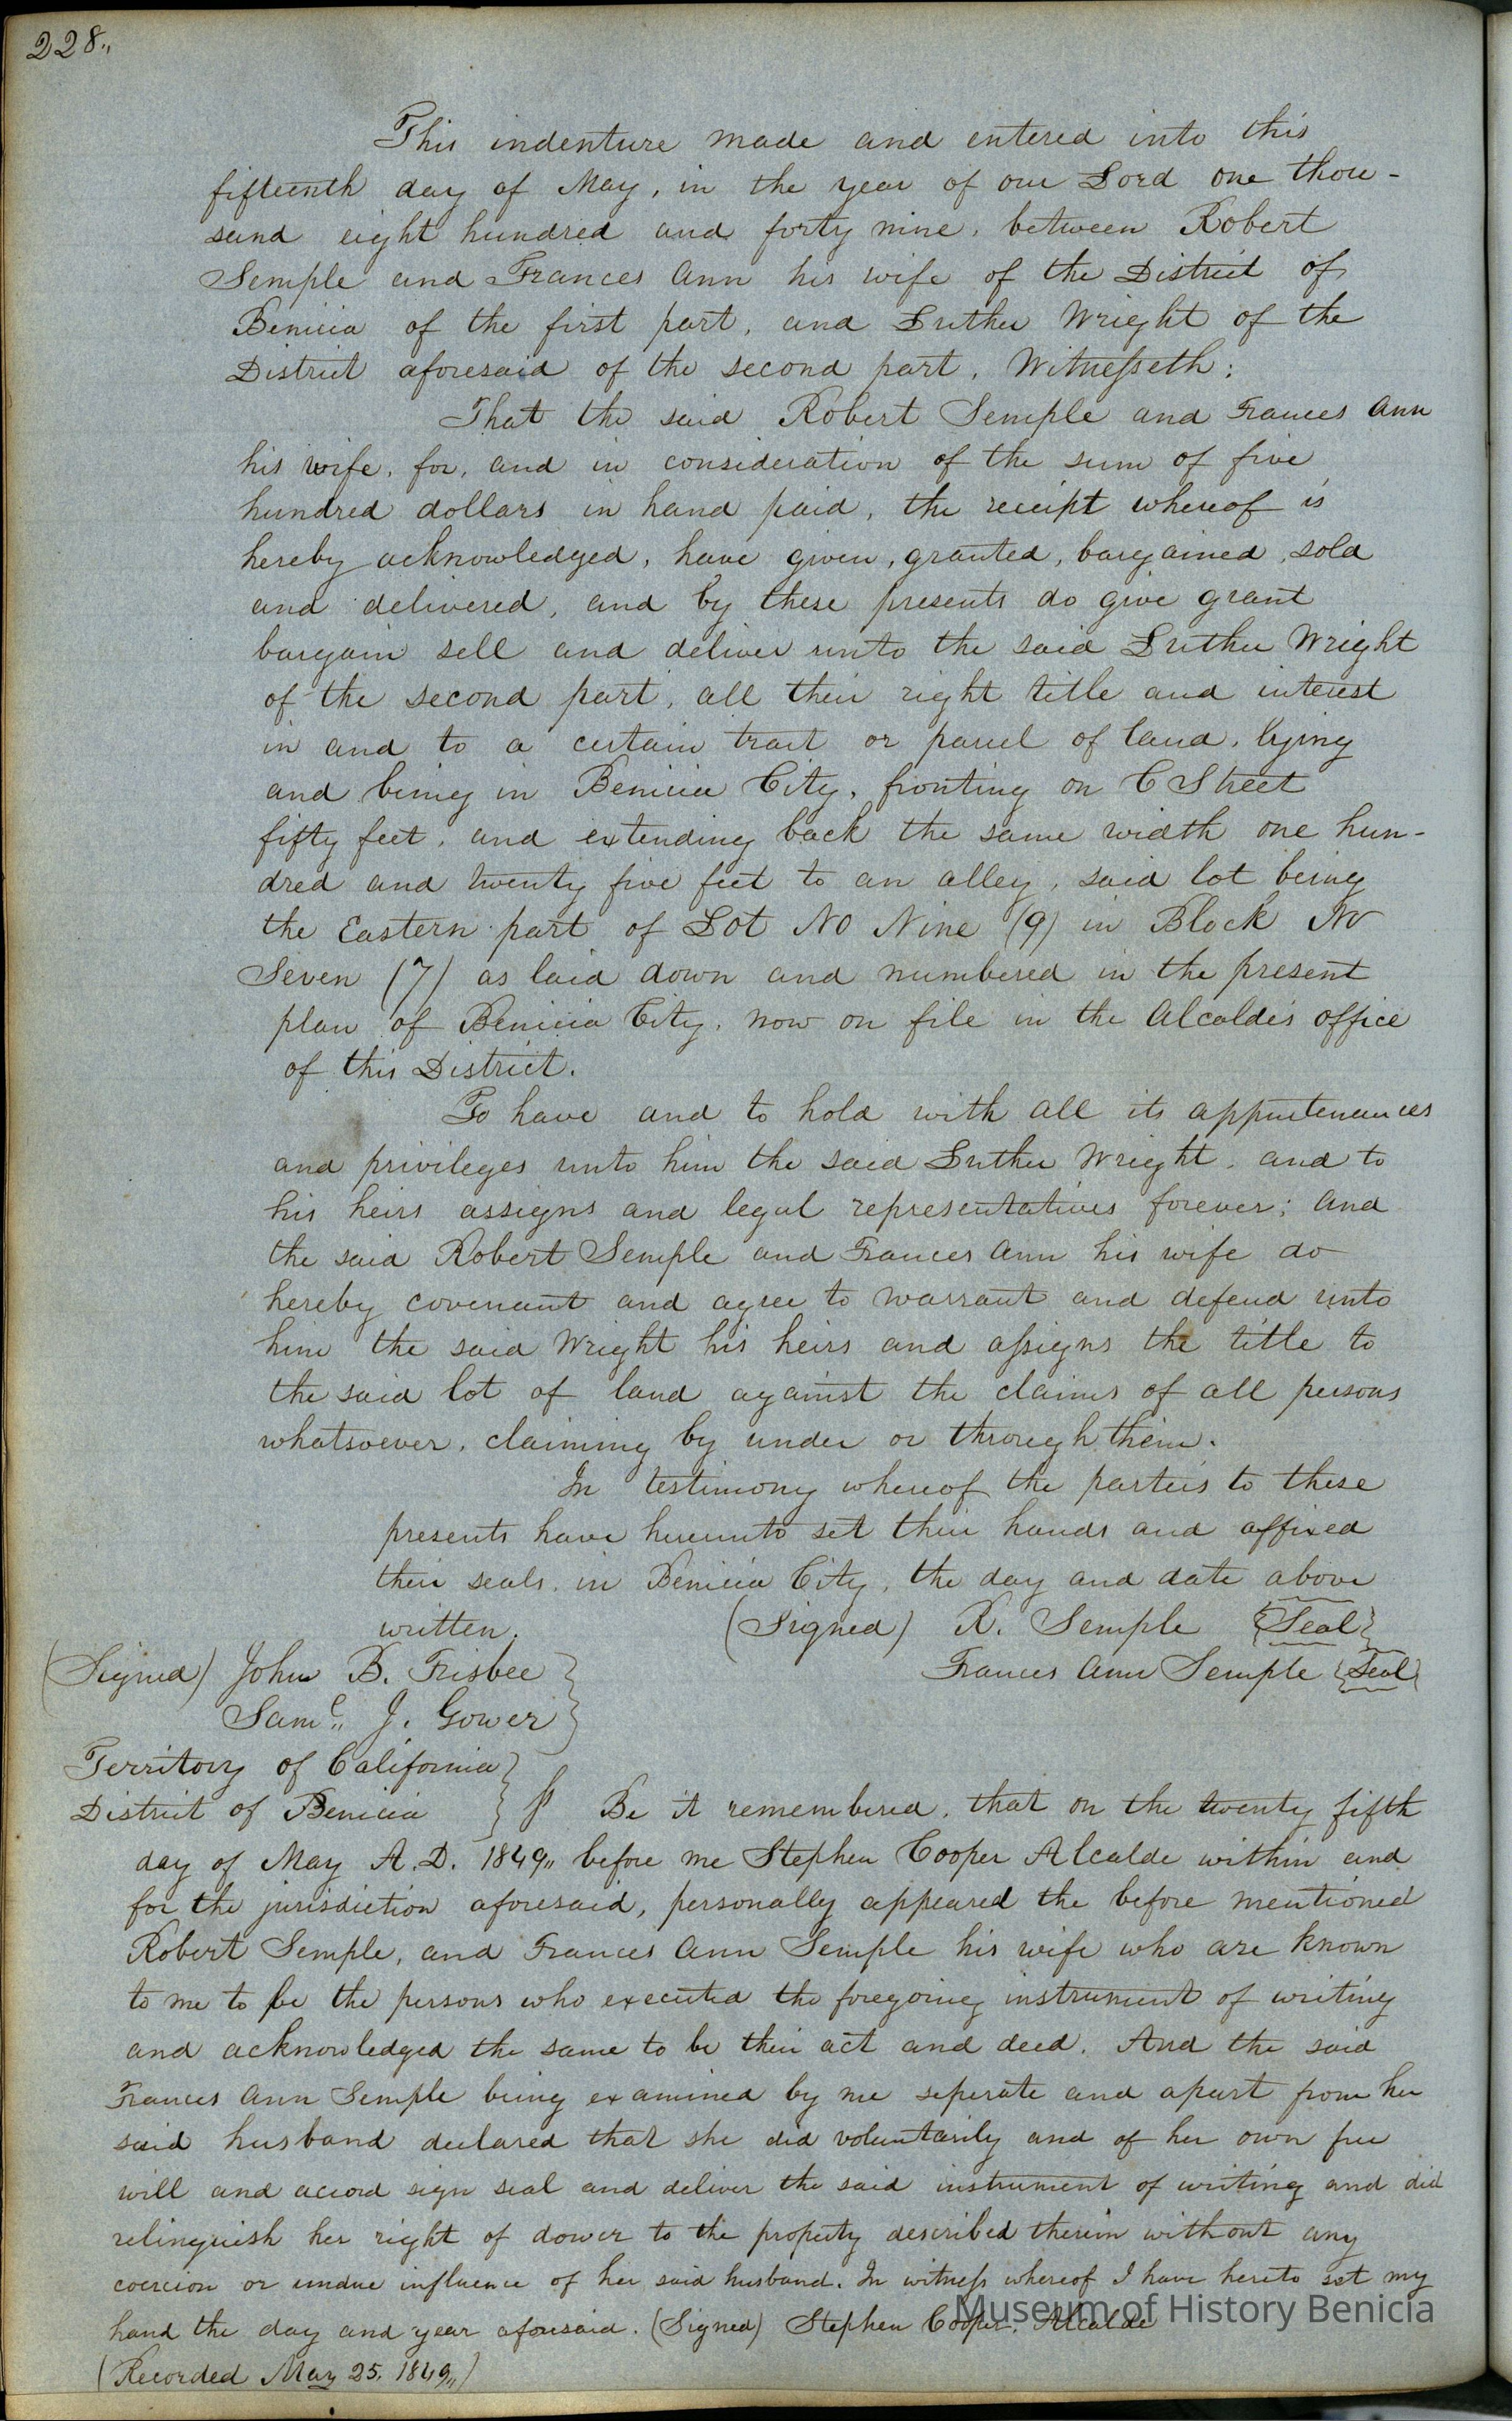 228"
This indenture made and entered into this
fifteenth day of May, in the year of our Lord one thou-
sand eight hundred and forty nine, between Robert
Semple and Frances Ann his wife of the District of
Benicia of the first part, and Luther Wright of the
District aforesaid of the second part, Witnesseth;
That the said Robert Semple and Frances Ann
his wife, for, and in consideration of the sum of five
hundred dollars in hand paid, the receipt whereof is
hereby acknowledged, have given, granted, bargained, sold
and delivered, and by these presents do give grant
bargain sell and deliver unto the said Luther Wright
of the second part, all their right title and interest
in and to a certain tract or parcel of land, lying
and being in Benicia City, fronting on C Street
fifty feet, and extending back the same width one hun-
dred and twenty five feet to an alley, said lot being
the Eastern part of Lot No Nine (9) in Block No
Seven (7) as laid down and numbered in the present
plan of Benicia City, now on file in the Alcalde's office
of this District.
To have and to hold with all its appurtenances
and privileges unto him the said Luther Wright, and to
his heirs assigns and legal representatives forever; and
the said Robert Semple and Frances Ann his wife do
hereby covenant and agree to warrant and defend unto
him the said Wright his heirs and assigns the title to
the said lot of land against the claims of all persons
whatsoever, claiming by under or through them.
In testimony whereof the parties to these
presents have hereunto set their hands and affixed
their seals, in Benicia City, the day and date above
written. (Signed) R. Semple {Seal}
(Signed) John B. Frisbee } Frances Ann Semple {Seal}
Saml" J. Gower }
Territory of California }
District of Benicia } ss Be it remembered, that on the twenty fifth
day of May A.D. 1849" before me Stephen Cooper Alcalde within and
for the jurisdiction aforesaid, personally appeared the before mentioned
Robert Semple, and Frances Ann Semple his wife who are known
to me to be the persons who executed the foregoing instrument of writing
and acknowledged the same to be their act and deed. And the said
Frances Ann Semple being examined by me seperate and apart from her
said husband declared that she did voluntarily and of her own free
will and accord sign seal and deliver the said instrument of writing and did
relinquish her right of dower to the property described therein without any
coercion or undue influence of her said husband. In witness whereof I have hereto set my
hand the day and year aforesaid. (Signed) Stephen Cooper, Alcalde
(Recorded May 25. 1849")
Museum of History Benicia